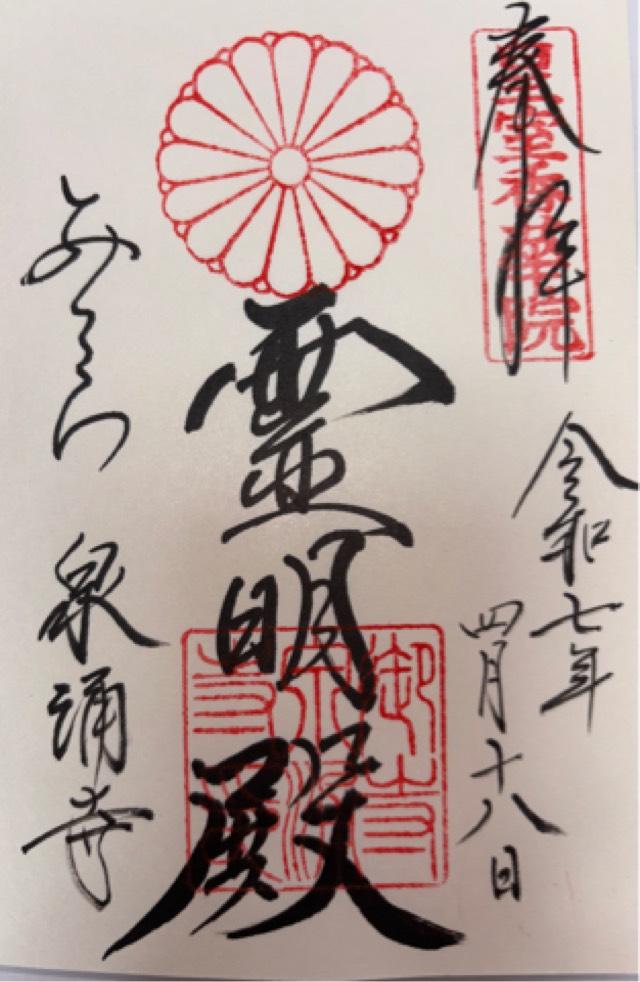 奉拝
皇室香華院
令和七年
四月十八日
霊明殿
御寺
泉涌
寺印
みてら 泉涌寺